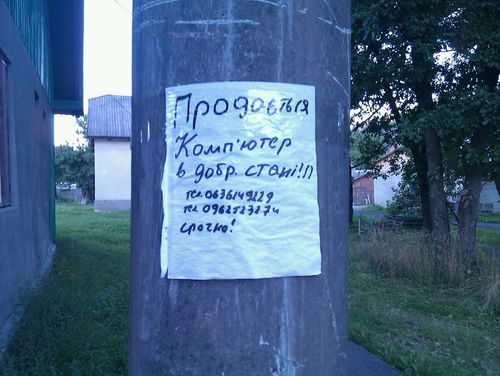 Продається
Комп'ютер
в добр. стані!!!
тел. 0636149229
тел. 0962723274
срочно!